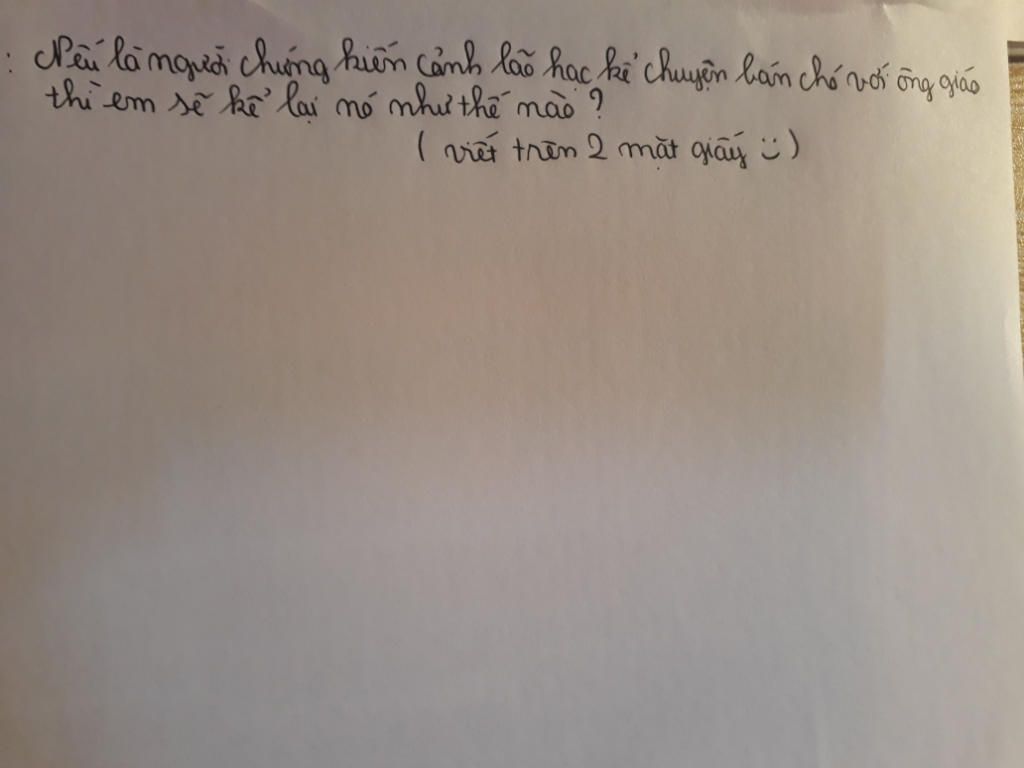 : Nếu là người chứng kiến cảnh lão hạc kể chuyện bán chó với ông giáo
thì em sẽ kể lại nó như thế nào?
( viết trên 2 mặt giấy :) )